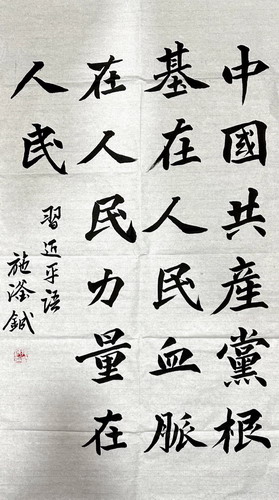 中國共產黨根
基在人民血脈
在人民力量在
人民
習近平语
施滏鉽